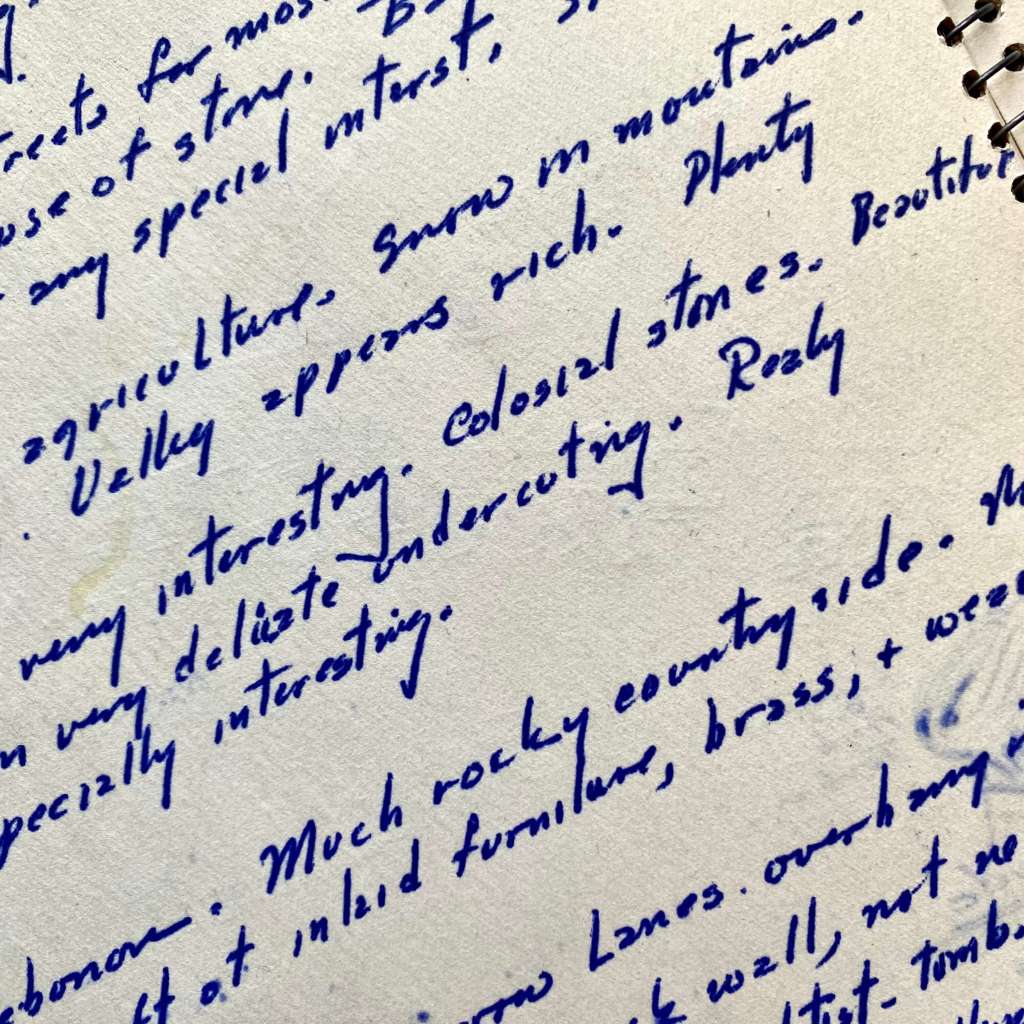 for mos
use of stone.
any special interst,
agriculture. Snow in moutains.
. Valley appears rich. Plenty
very interesting. Colosial stones. Beautiful
very delicate undercuting. Realy
specially interesting.
Much rocky countryside.
of inlaid furniture, brass, +
Lanes. overhang
wall, not
tomb.